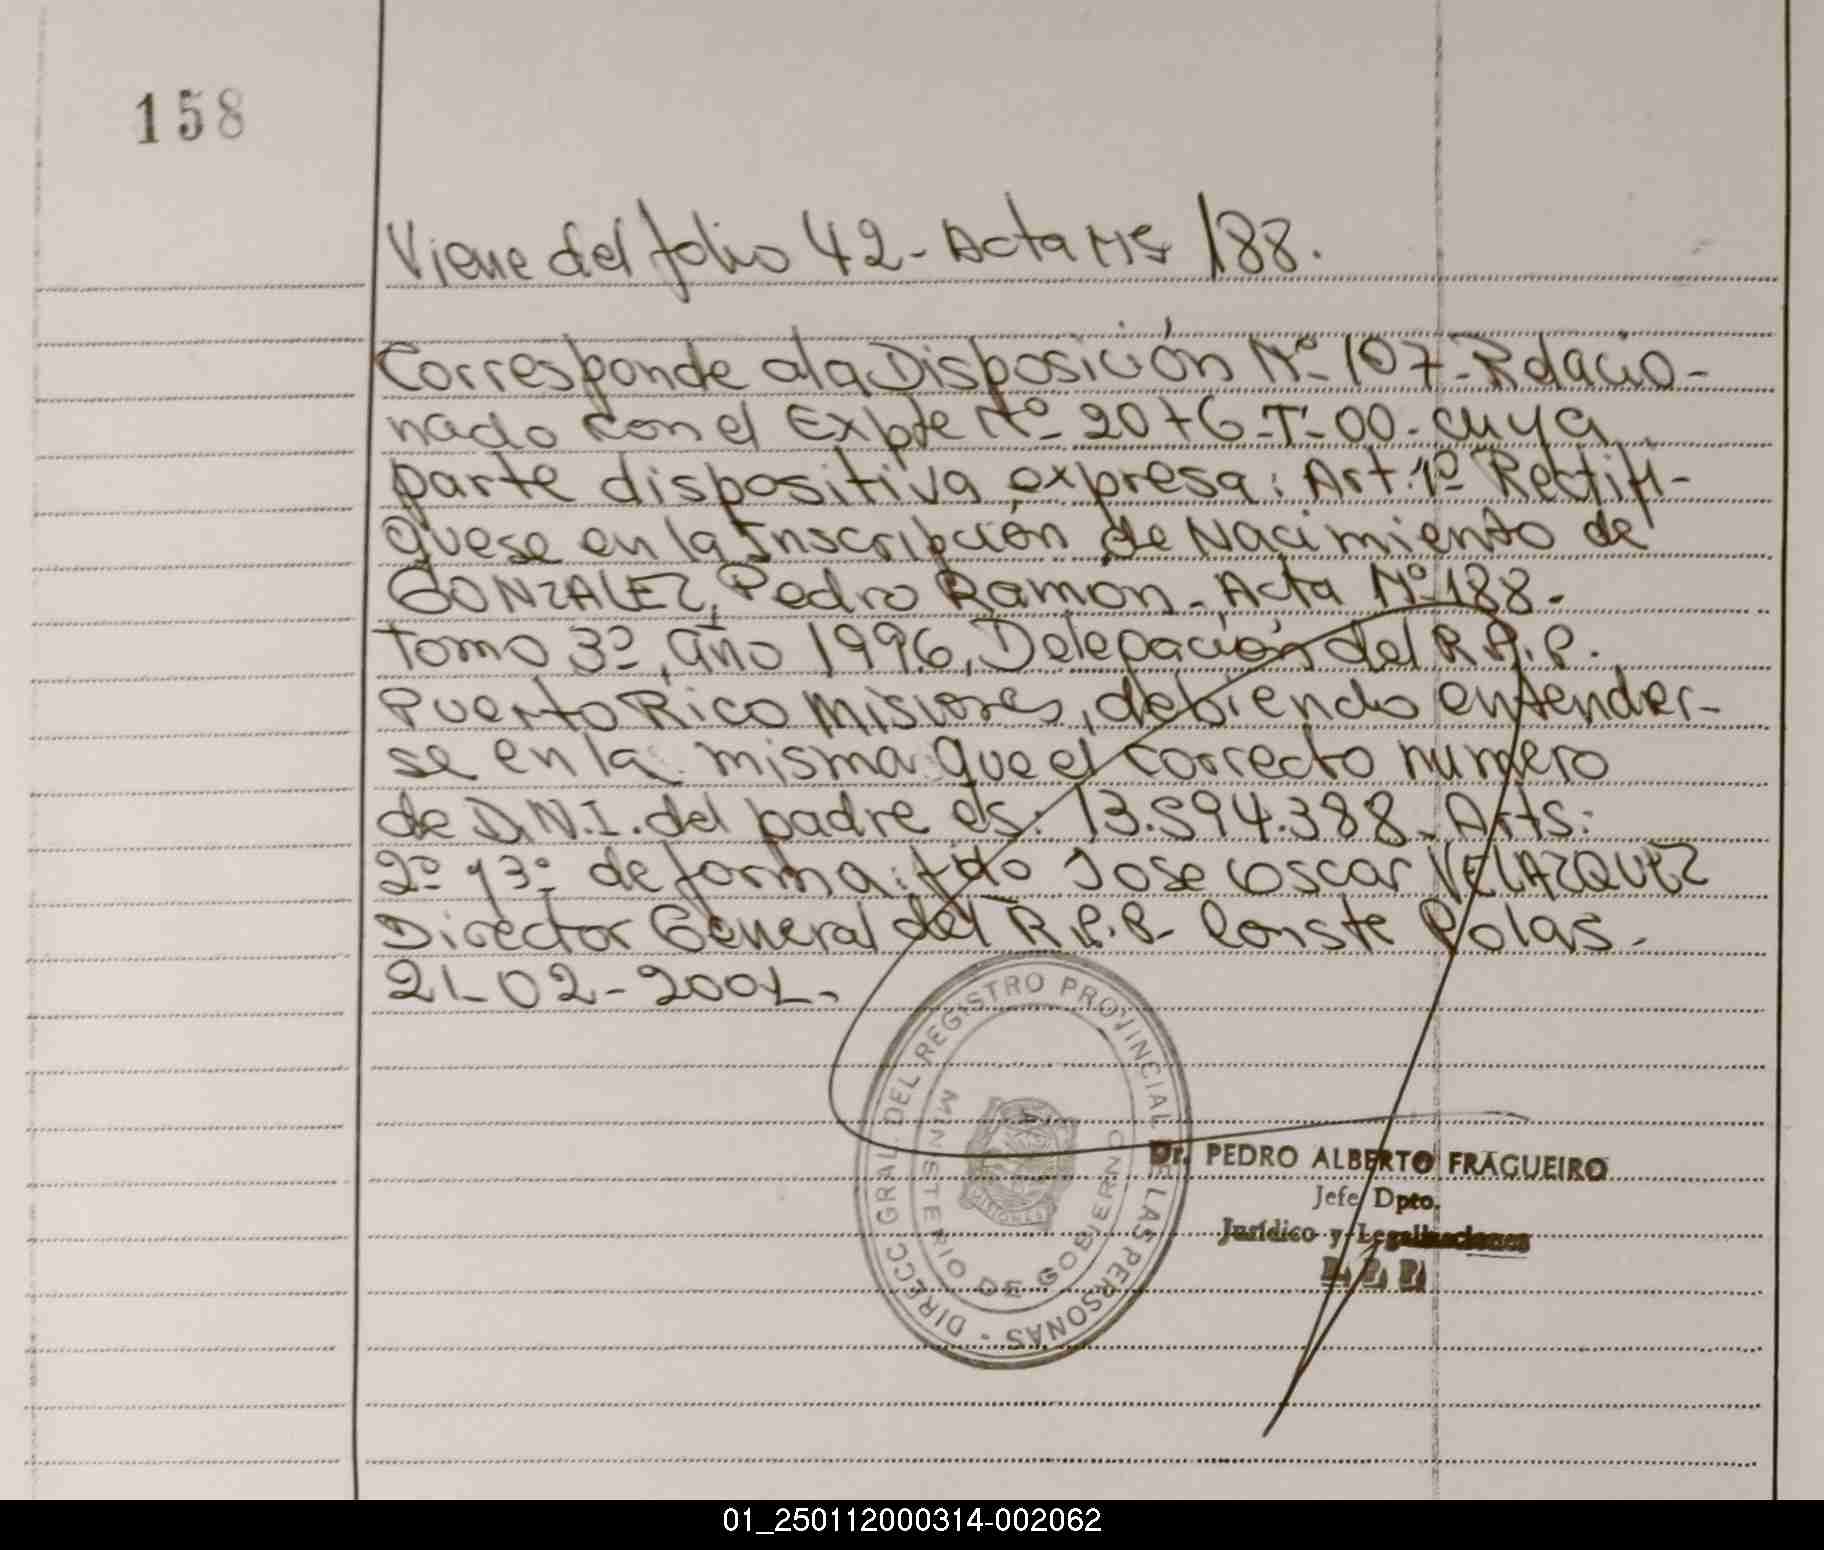 158
Viene del folio 42 - Acta Nº 188.
Corresponde a la Disposición Nº 107 - Relacio-
nado con el Expte Nº 2076-T-00. cuya
parte dispositiva expresa: Art. 1º Rectifí-
quese en la Inscripción de Nacimiento de
GONZALEZ, Pedro Ramón - Acta Nº 188.
tomo 3º, año 1996, Delegación del R.P.P.
Puerto Rico Misiones, debiendo entender-
se en la misma que el correcto numero
de D.N.I. del padre es: 13.594.388. Arts:
2º y 3º de forma: fdo Jose Oscar VELAZQUEZ
Director General del R.P.P. Conste Pdas.
21-02-2001.
DIRECC GRAL. DEL REGISTRO PROVINCIAL DE LAS PERSONAS
MINISTERIO DE GOBIERNO
MISIONES
Dr. PEDRO ALBERTO FRAGUEIRO
Jefe Dpto.
Jurídico y Legalizaciones
R. P. P.
01_250112000314-002062